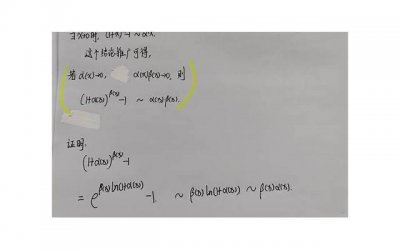 当x→0时, (1+x)^α-1 ~ αx.
这个结论推广可得,
若 α(x)→0, α(x)β(x)→0, 则
(1+α(x))^β(x)-1 ~ α(x)β(x).
证明:
(1+α(x))^β(x)-1
= e^β(x)ln(1+α(x))-1 ~ β(x)ln(1+α(x)) ~ β(x)α(x).